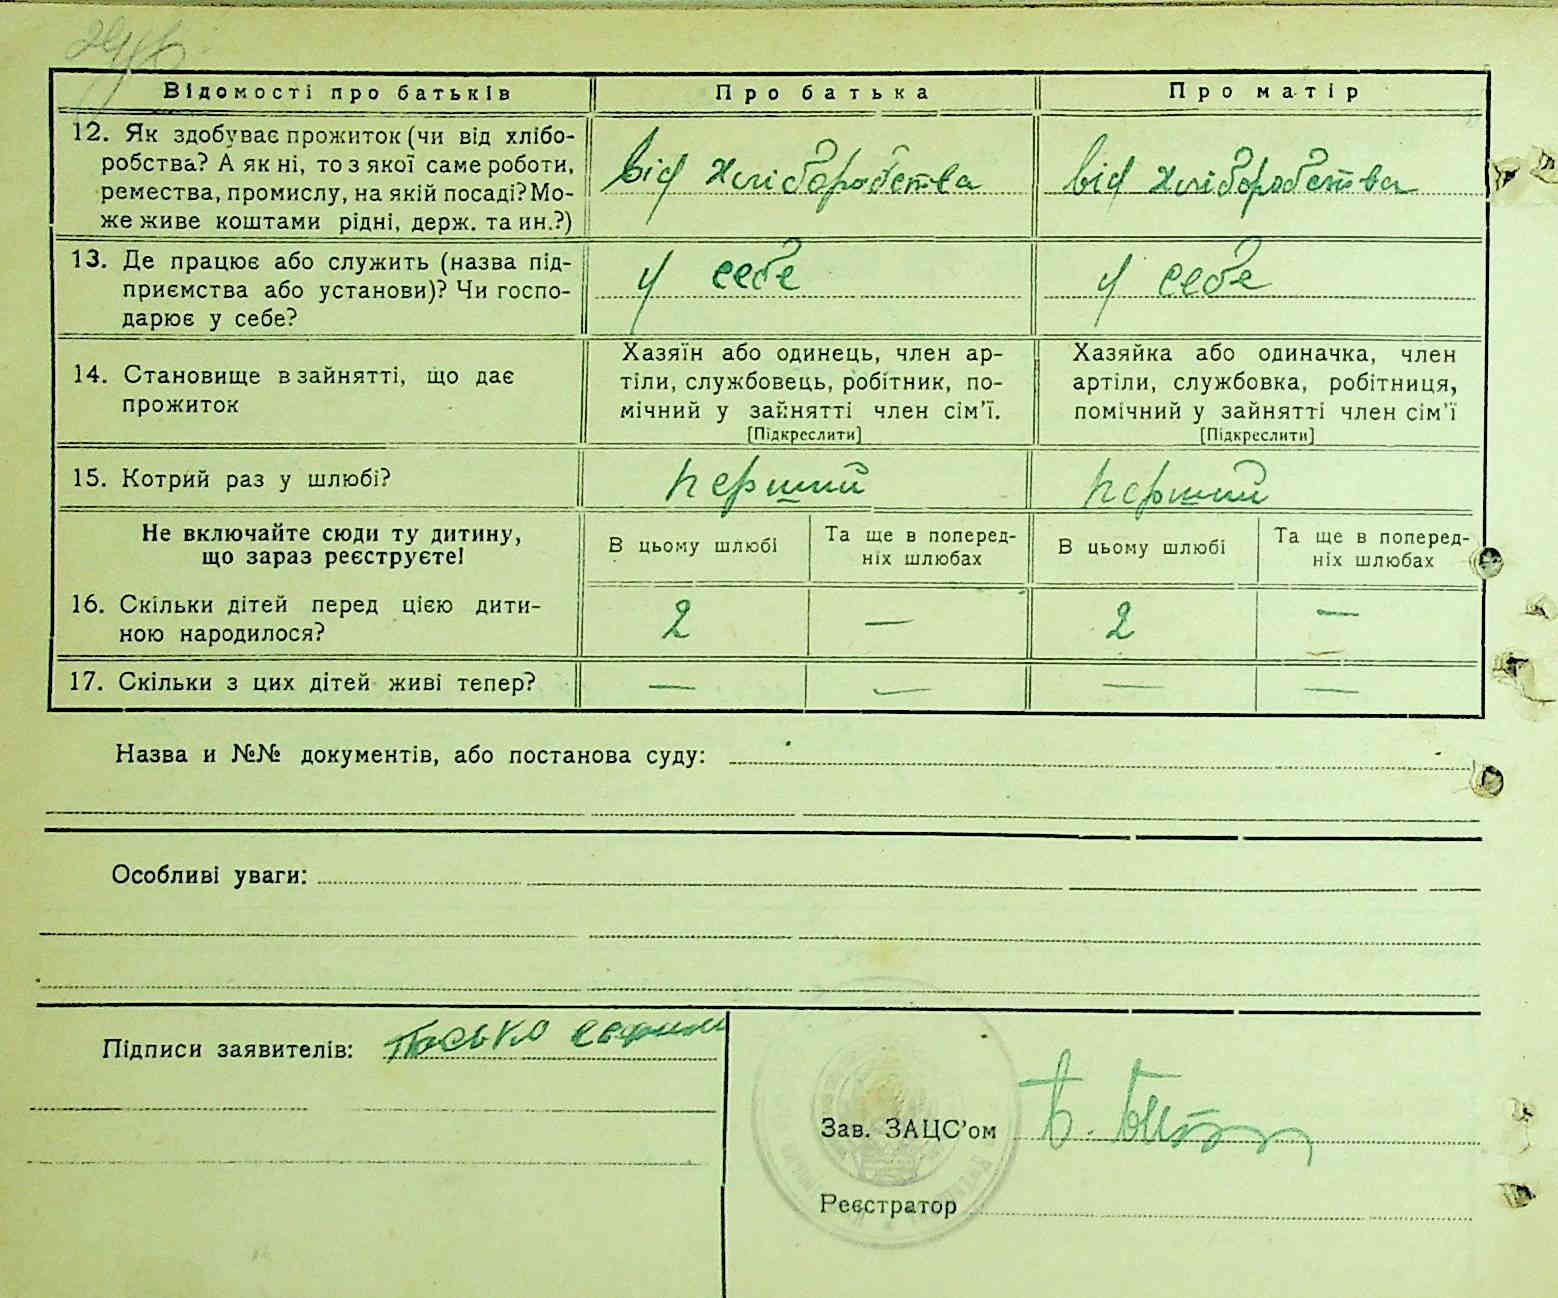 Відомості про батьків
Про батька
Про матір
12. Як здобуває прожиток (чи від хлібо-
робства? А як ні, то з якої саме роботи,
ремества, промислу, на якій посаді? Мо-
же живе коштами рідні, держ. та ин.?)
від хліборобства
від хліборобства
13. Де працює або служить (назва під-
приємства або установи)? Чи госпо-
дарює у себе?
у себе
у себе
14. Становище в зайнятті, що дає
прожиток
Хазяїн або одинець, член ар-
тіли, службовець, робітник, по-
мічний у зайнятті член сім'ї.
[Підкреслити]
Хазяйка або одиначка, член
артіли, службовка, робітниця,
помічний у зайнятті член сім'ї
[Підкреслити]
15. Котрий раз у шлюбі?
перший
перший
Не включайте сюди ту дитину,
що зараз реєструєте!
В цьому шлюбі
Та ще в поперед-
ніх шлюбах
В цьому шлюбі
Та ще в поперед-
ніх шлюбах
16. Скільки дітей перед цією дити-
ною народилося?
2 — 2 —
17. Скільки з цих дітей живі тепер?
— — — —
Назва и №№ документів, або постанова суду:
Особливі уваги:
Підписи заявителів:
Зав. ЗАЦС'ом
Реєстратор